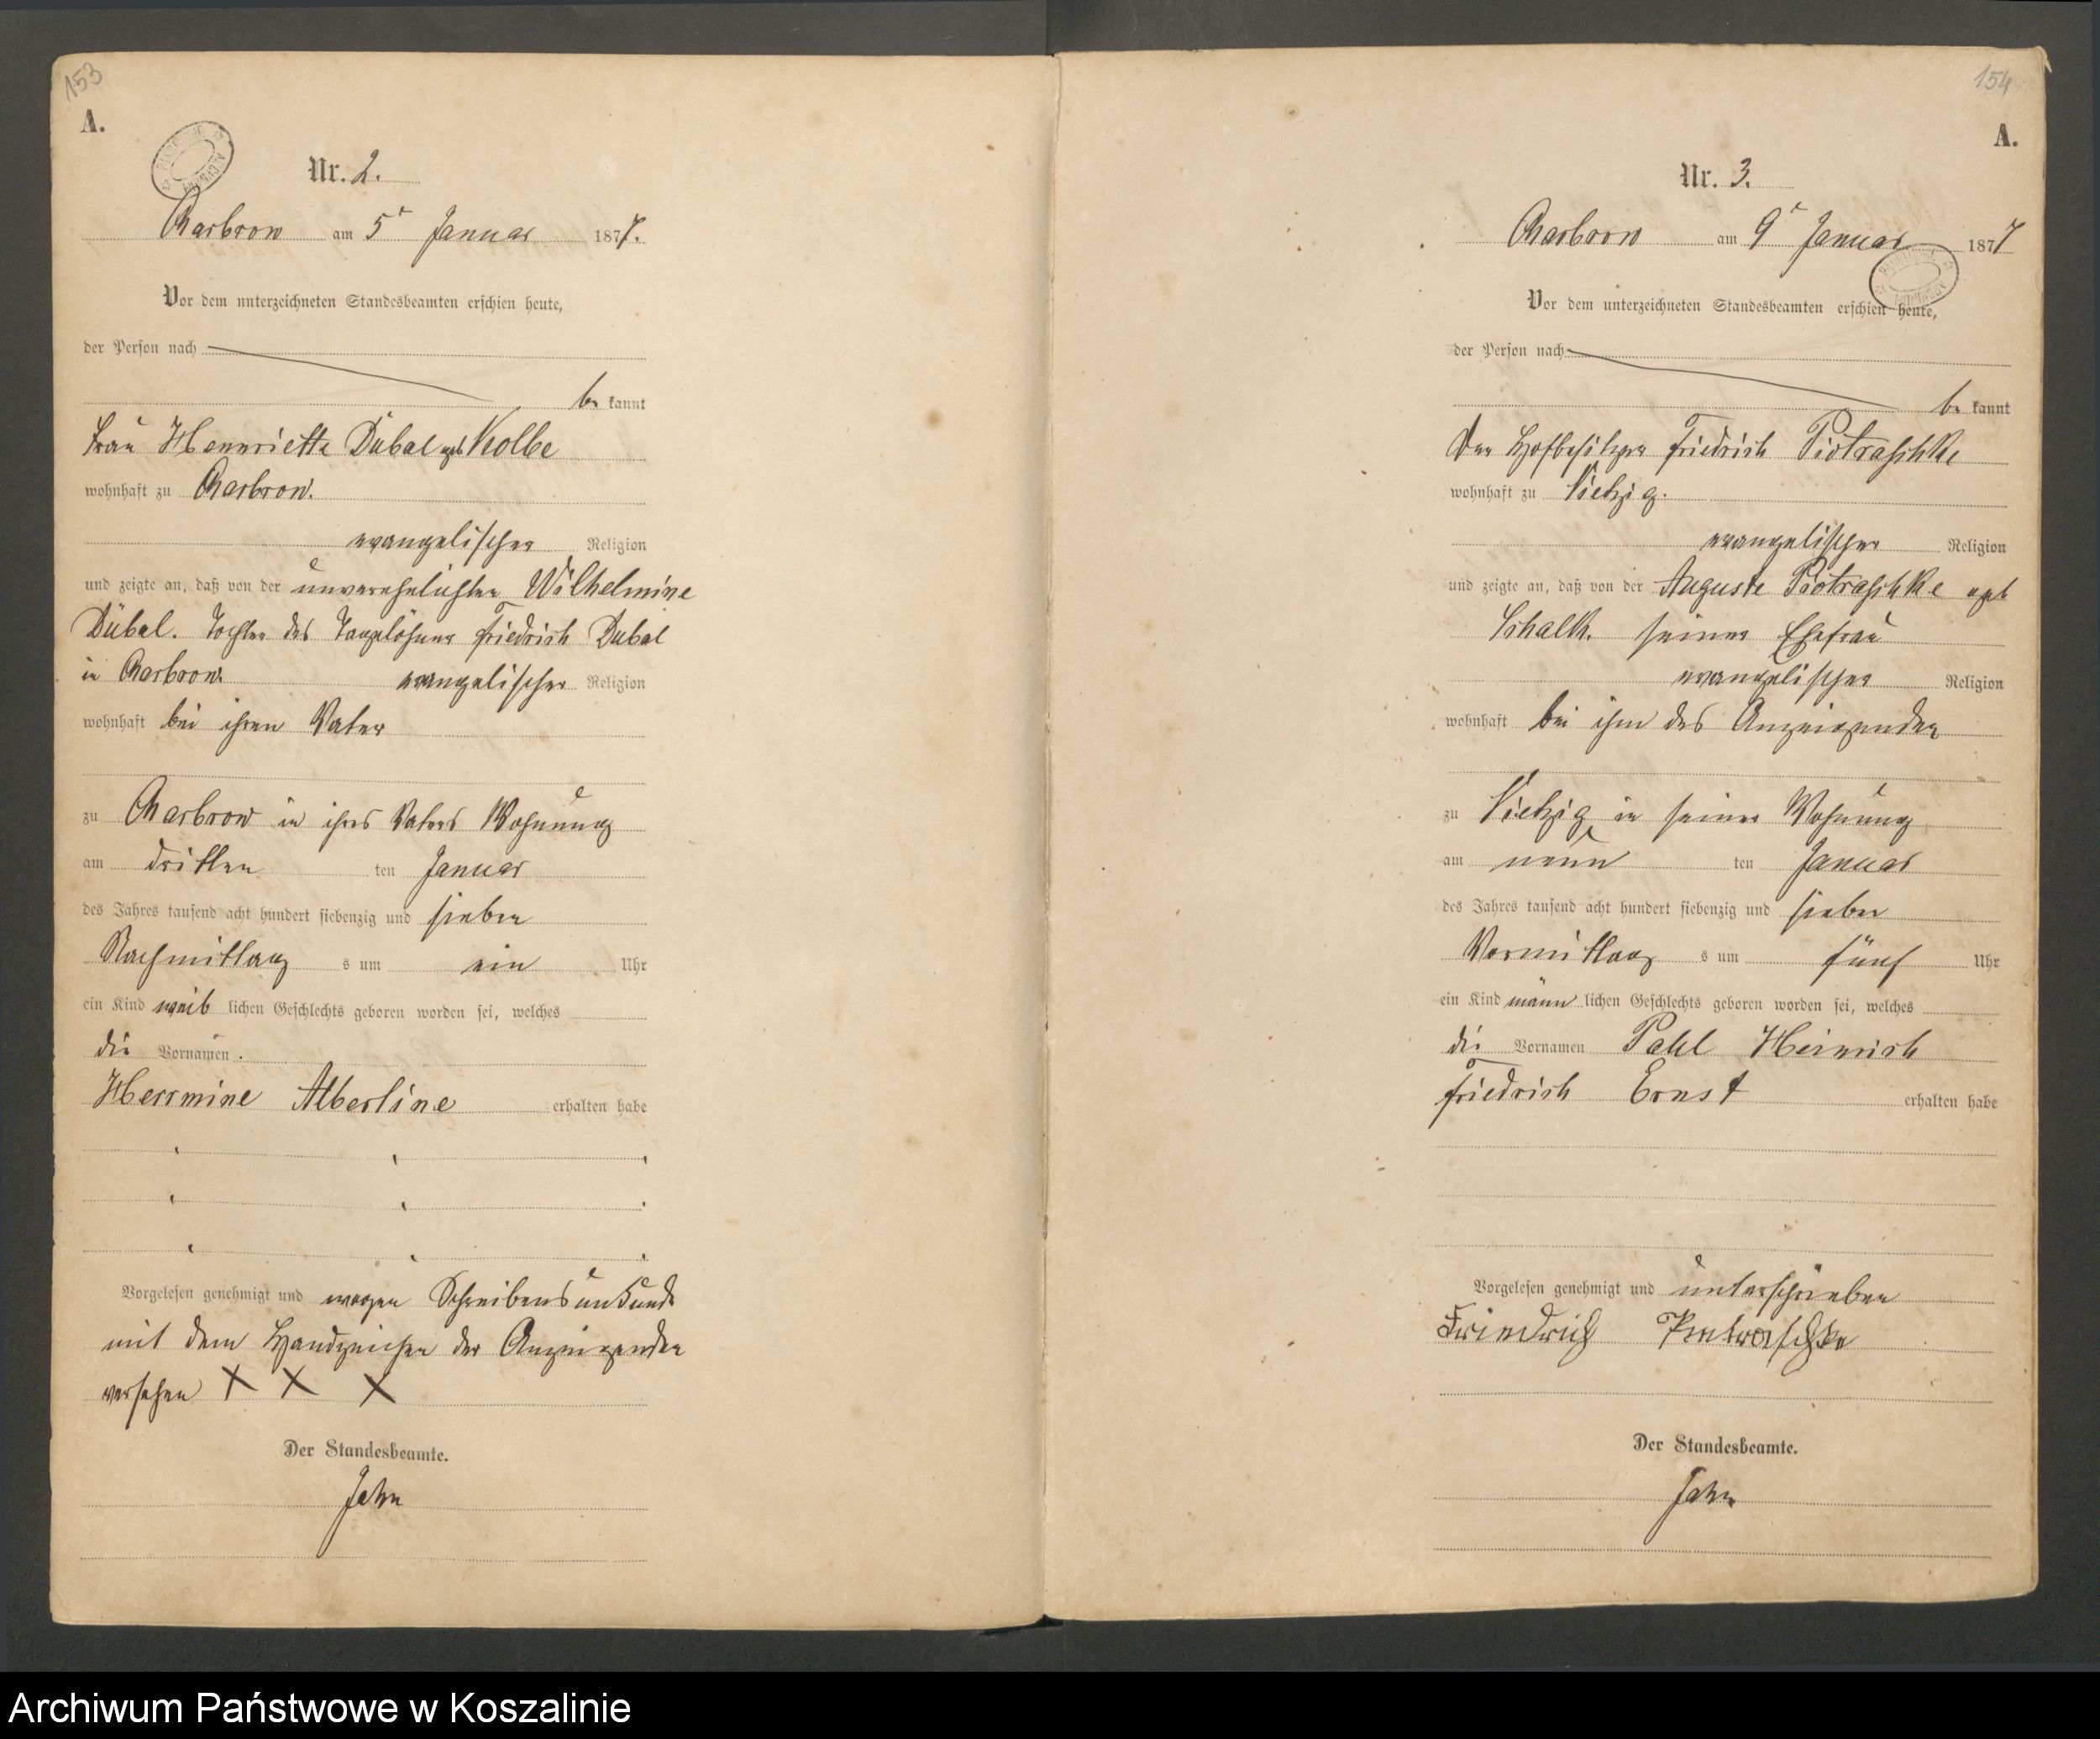 153
A.
Nr. 2.
Charbrow am 5t Januar 1877.
Vor dem unterzeichneten Standesbeamten erschien heute,
der Person nach
bekannt
Frau Hennriette Dübal geb Kolbe
wohnhaft zu Charbrow.
evangelischer Religion
und zeigte an, daß von der unverehelichten Wilhelmine
Dübal. Tochter des Tagelöhner Friedrich Dubal
in Charbrow. evangelischer Religion
wohnhaft bei ihren Vater
zu Charbrow in ihres Vaters Wohnung
am dritten ten Januar
des Jahres tausend acht hundert siebenzig und sieben
Nachmittag s um ein Uhr
ein Kind weib lichen Geschlechts geboren worden sei, welches
die Vornamen.
Herrmine Albertine erhalten habe
Vorgelesen genehmigt und wegen Schreibensunkunde
mit dem Handzeichen der Anzeigenden
versehen X X X
Der Standesbeamte.
Jahn
154
A.
Nr. 3.
Charbrow am 9t Januar 1877
Vor dem unterzeichneten Standesbeamten erschien heute,
der Person nach
bekannt
Der Hofbesitzer Friedrich Piotraschke
wohnhaft zu Vietzig.
evangelischer Religion
und zeigte an, daß von der Auguste Piotraschke geb
Schalk. seiner Ehefrau
evangelischer Religion
wohnhaft bei ihm des Anzeigenden
zu Vietzig in seiner Wohnung
am neun ten Januar
des Jahres tausend acht hundert siebenzig und sieben
Vormittag s um fünf Uhr
ein Kind männ lichen Geschlechts geboren worden sei, welches
die Vornamen Pahl Heinrich
Friedrich Ernst erhalten habe
Vorgelesen genehmigt und unterschrieben
Friedrich Pietraschke
Der Standesbeamte.
Jahn
Archiwum Państwowe w Koszalinie